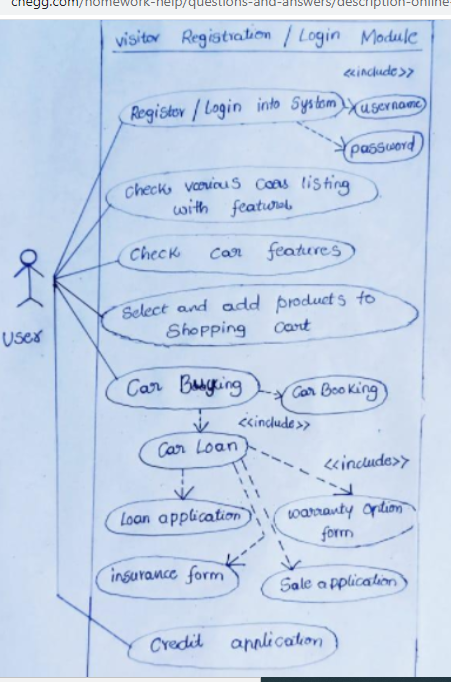 chegg.com/homework-help/questions-and-answers/description-online
visitor Registration / Login Module
<<include>>
Register / Login into System
username
password
Check various cars listing
with features
Check car features
Select and add products to
Shopping Cart
User
Car Buying
Car Booking
<<include>>
Car Loan
<<include>>
Loan application
warranty Option
form
insurance form
Sale application
Credit application